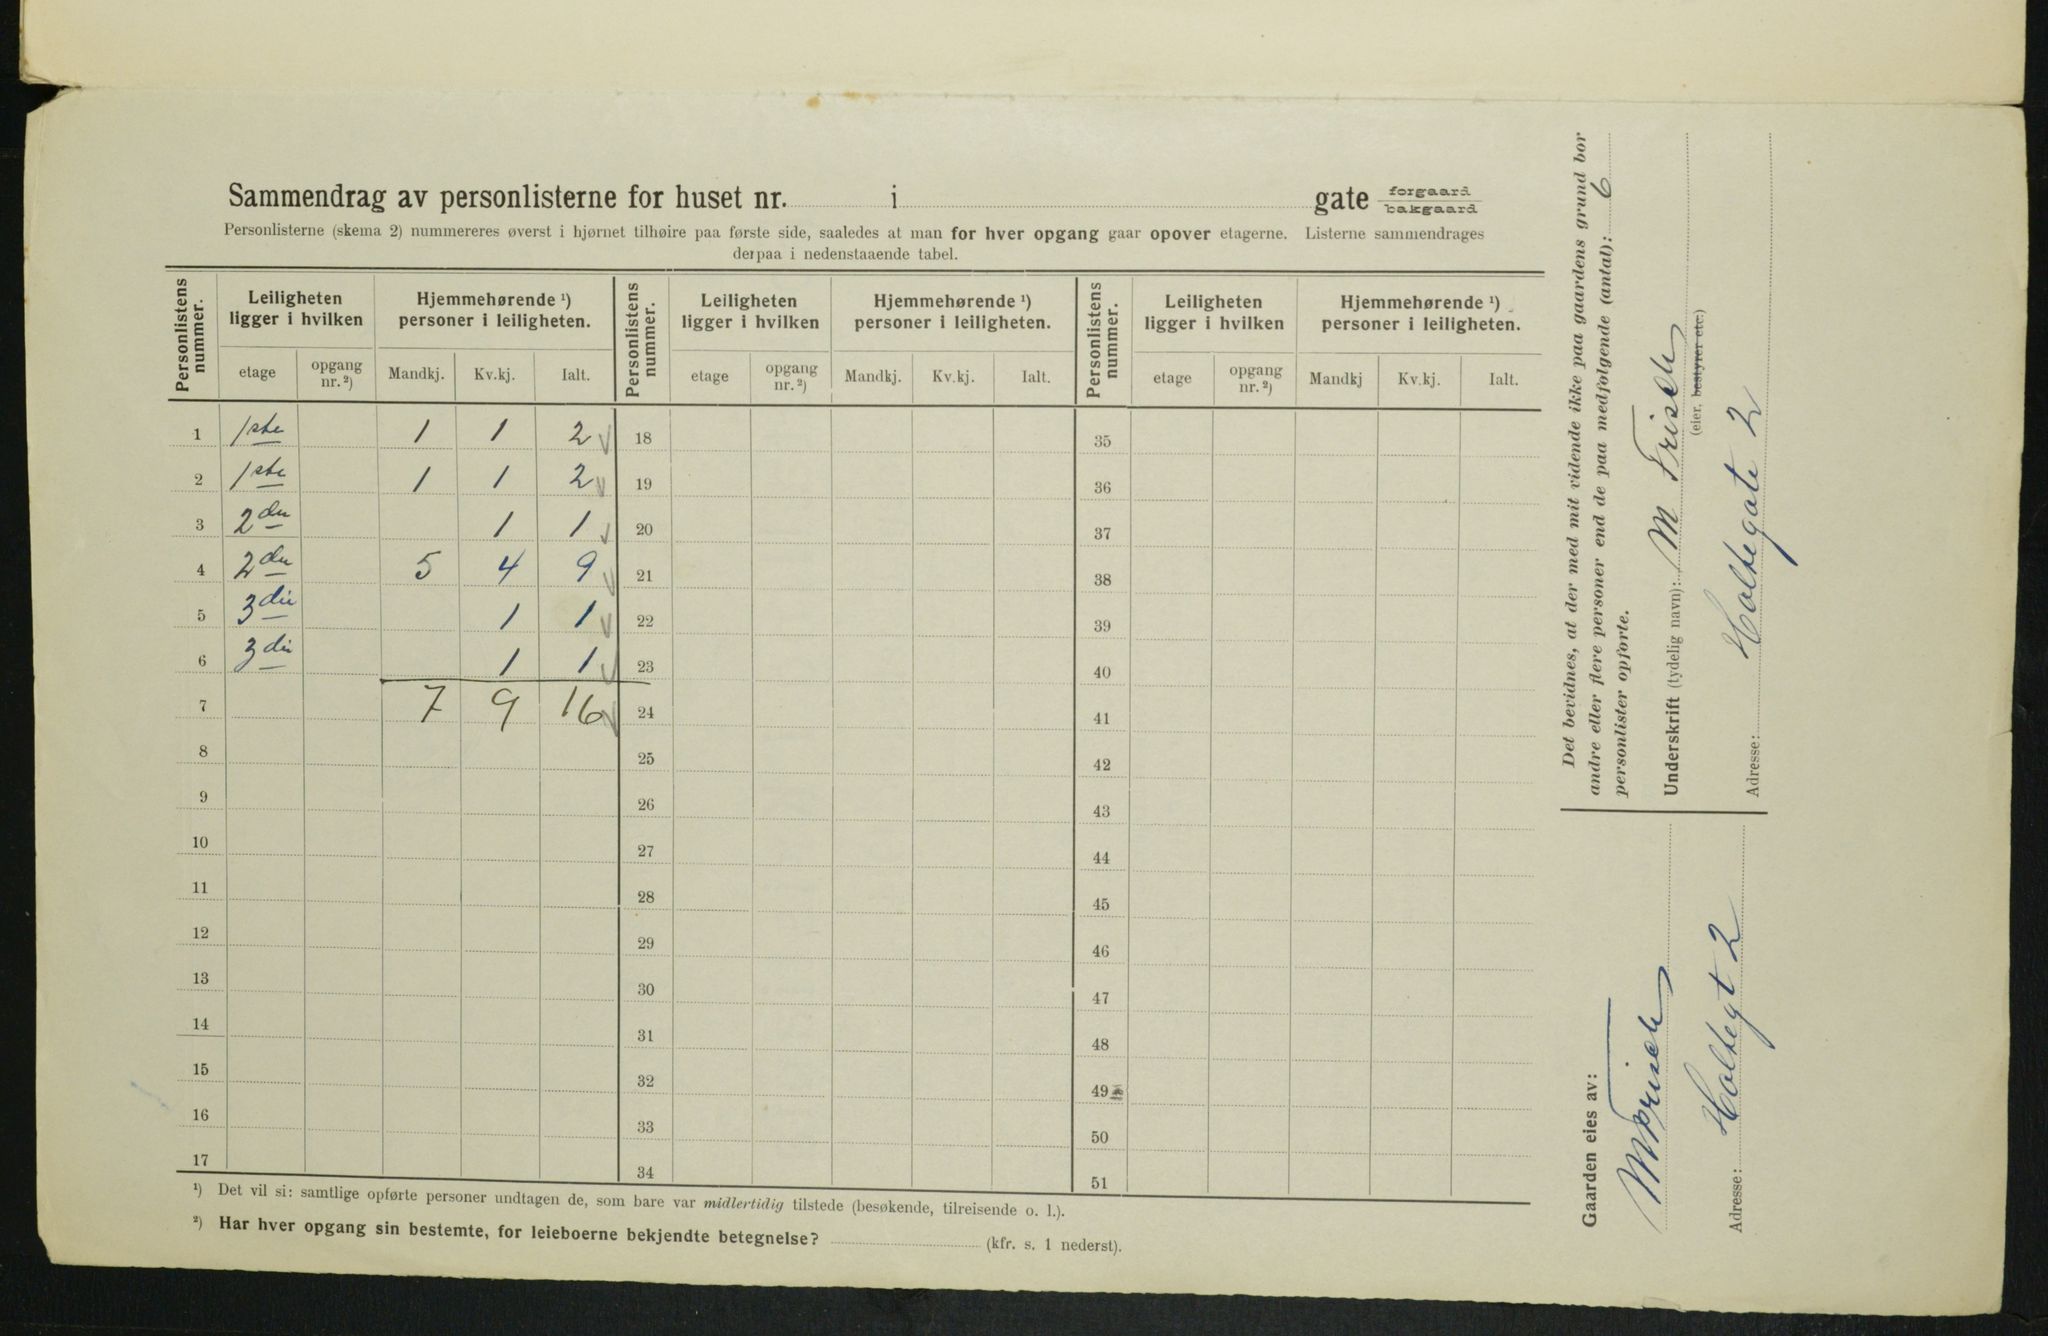 Sammendrag av personlisterne for huset nr. i gate forgaard bakgaard
Personlisterne (skema 2) nummereres øverst i hjørnet tilhøire paa første side, saaledes at man for hver opgang gaar opover etagerne. Listerne sammendrages
derpaa i nedenstaaende tabel.
Personlistens nummer. Leiligheten ligger i hvilken Hjemmehørende ¹) personer i leiligheten. Personlistens nummer. Leiligheten ligger i hvilken Hjemmehørende ¹) personer i leiligheten. Personlistens nummer. Leiligheten ligger i hvilken Hjemmehørende ¹) personer i leiligheten.
etage opgang nr. ²) Mandkj. Kv.kj. Ialt. etage opgang nr. ²) Mandkj. Kv.kj. Ialt. etage opgang nr. ²) Mandkj Kv.kj. Ialt.
1 1ste 1 1 2 18 35
2 1ste 1 1 2 19 36
3 2den 1 1 20 37
4 2den 5 4 9 21 38
5 3die 1 1 22 39
6 3die 1 1 23 40
7 7 9 16 24 41
8 25 42
9 26 43
10 27 44
11 28 45
12 29 46
13 30 47
14 31 48
15 32 49
16 33 50
17 34 51
¹) Det vil si: samtlige opførte personer undtagen de, som bare var midlertidig tilstede (besøkende, tilreisende o. l.).
²) Har hver opgang sin bestemte, for leieboerne bekjendte betegnelse? (kfr. s. 1 nederst).
Det bevidnes, at der med mit vidende ikke paa gaardens grund bor
andre eller flere personer end de paa medfølgende (antal): 6
personlister opførte.
Underskrift (tydelig navn): M Frisch
(eier, bestyrer etc.)
Adresse: Holtegate 2
Gaarden eies av:
M Frisch
Adresse: Holtegt 2